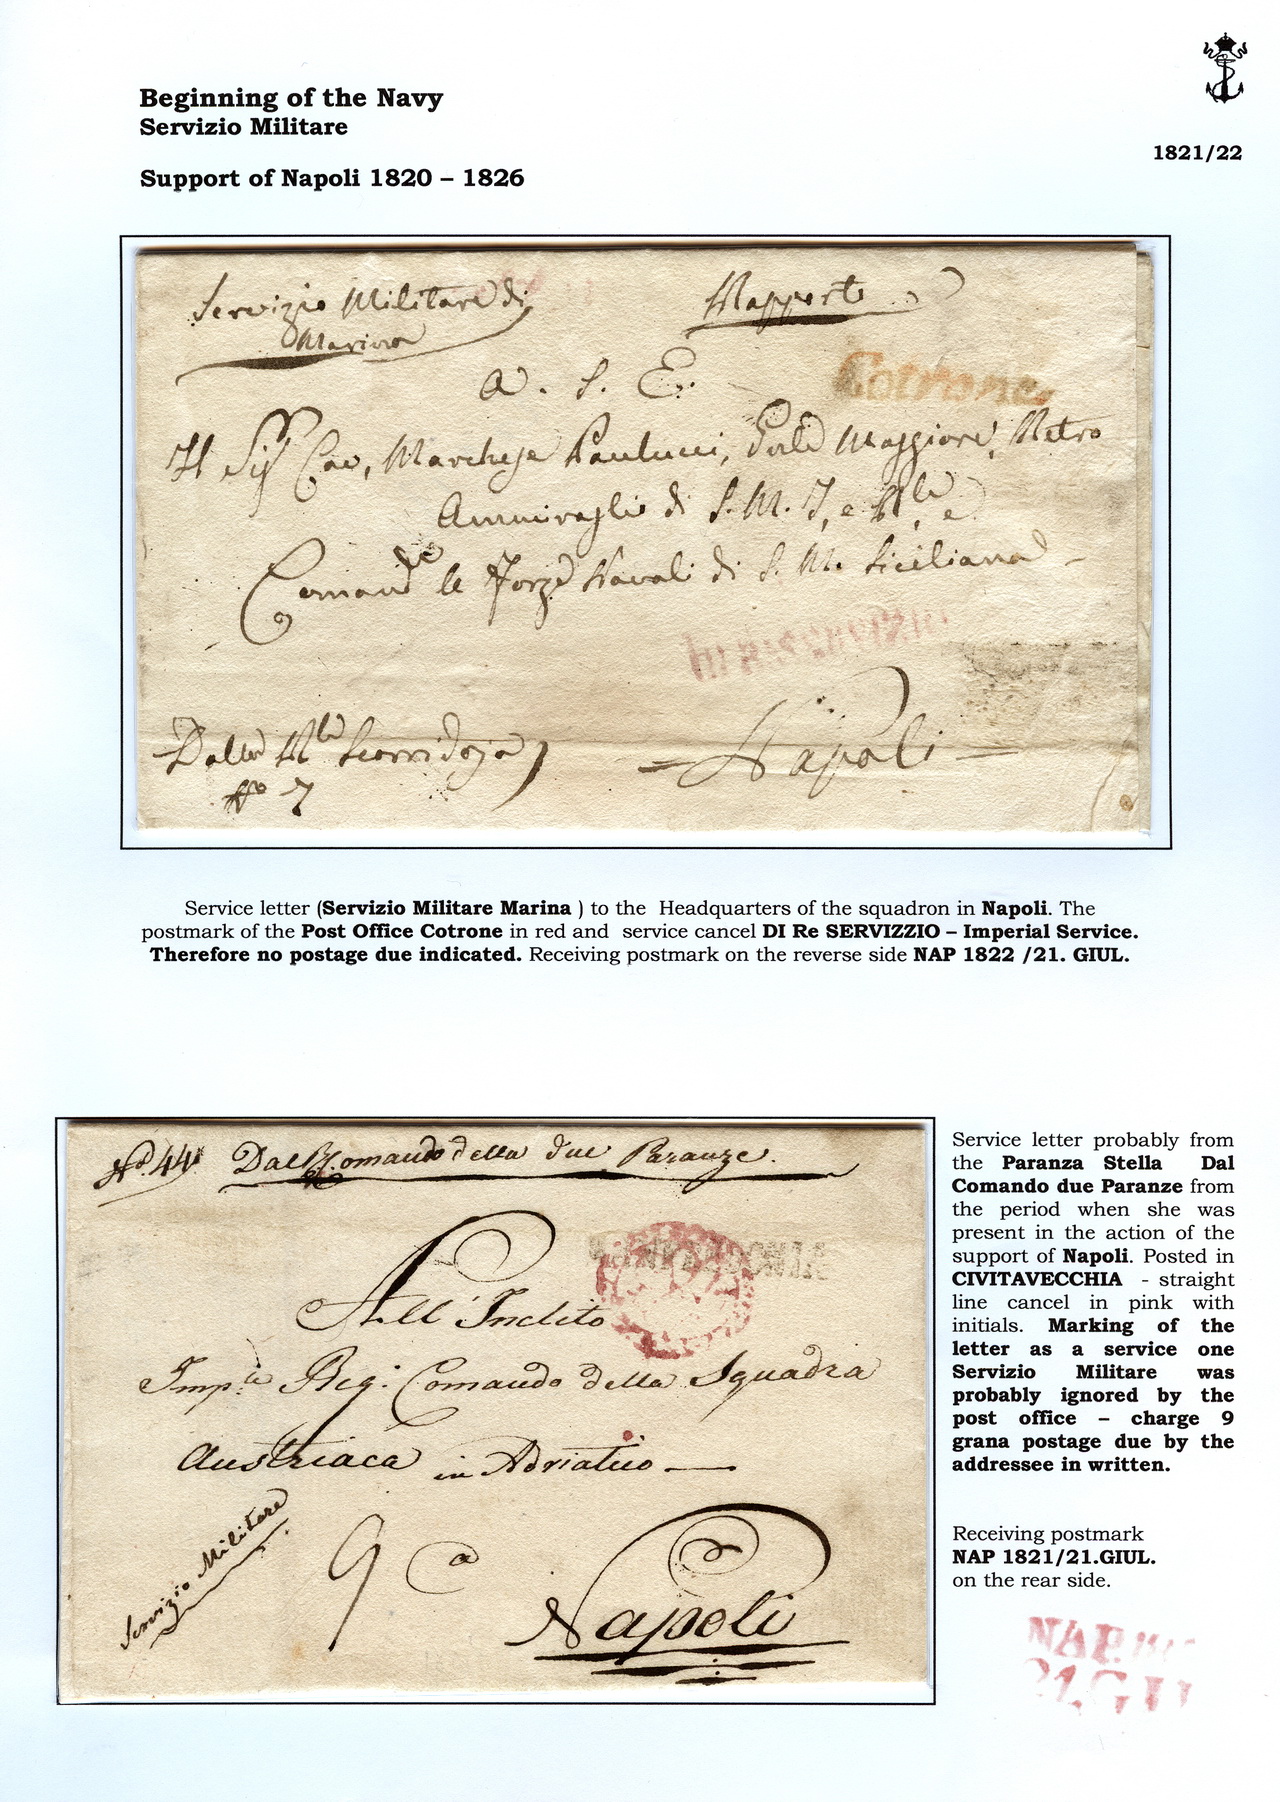 Beginning of the Navy
Servizio Militare
1821/22
Support of Napoli 1820 – 1826
Servizio Militare di
Marina
Rapporto
A. S. E.
Cotrone
Il Sig Cav, Marchese Paulucci, Maggiore, Retro
Ammiraglio di S. M. I, e Rle, e
Comande le Forze Navali di S. M. Siciliana
Dalla Rle Scorridoja
No 7
Napoli
Service letter (Servizio Militare Marina ) to the Headquarters of the squadron in Napoli. The
postmark of the Post Office Cotrone in red and service cancel DI Re SERVIZZIO – Imperial Service.
Therefore no postage due indicated. Receiving postmark on the reverse side NAP 1822 /21. GIUL.
No. 44 Dal Comando della due Paranze.
All' Inclito
Imple Reg. Comando della Squadra
Austriaca in Adriatico
Servizio Militare
9
Napoli
Service letter probably from
the Paranza Stella Dal
Comando due Paranze from
the period when she was
present in the action of the
support of Napoli. Posted in
CIVITAVECCHIA - straight
line cancel in pink with
initials. Marking of the
letter as a service one
Servizio Militare was
probably ignored by the
post office – charge 9
grana postage due by the
addressee in written.
Receiving postmark
NAP 1821/21.GIUL.
on the rear side.
NAP.
21.GIU